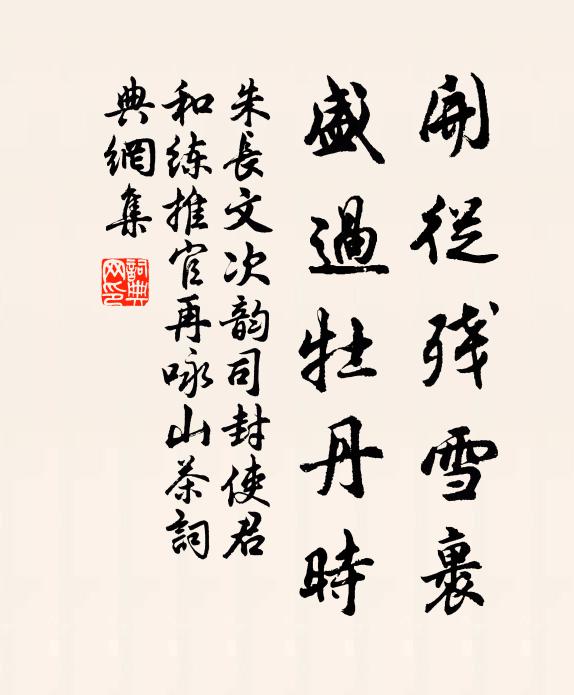 開從残雪裹
盛過牡丹時
朱長文次韵司封使君
和练推官再咏山茶詞
典網集
詞典
网印